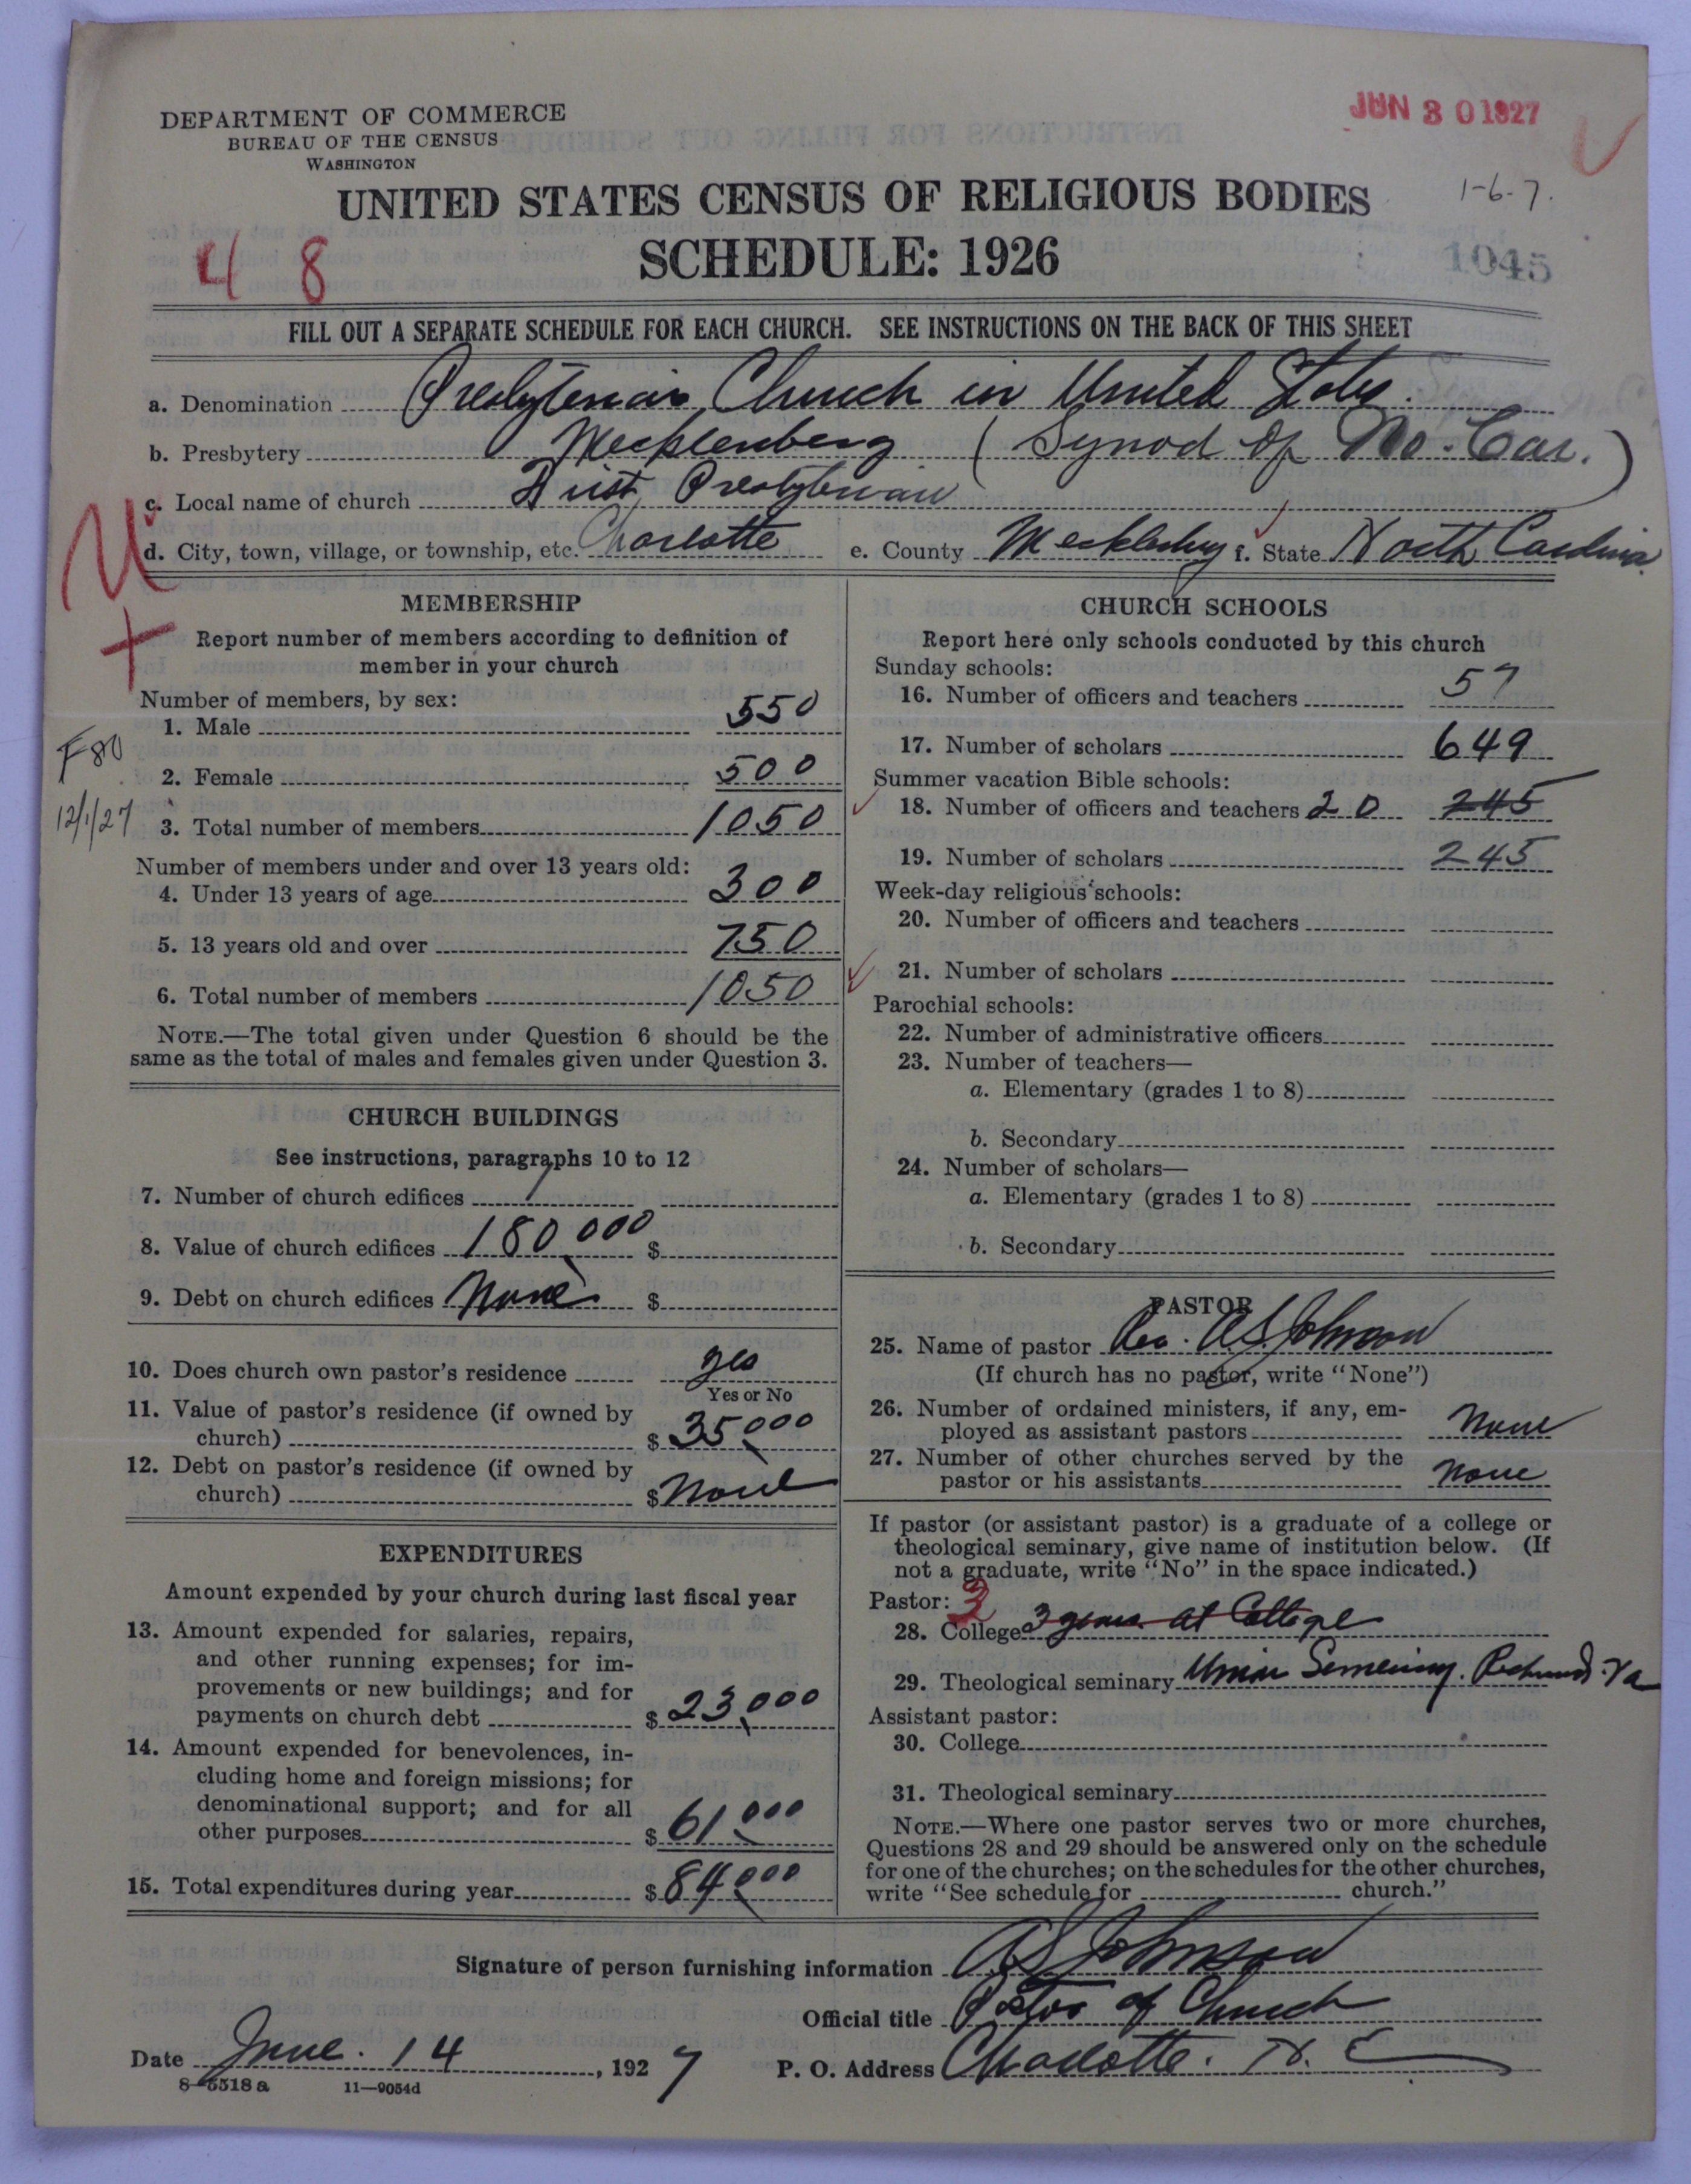 DEPARTMENT OF COMMERCE
BUREAU OF THE CENSUS
WASHINGTON
JUN 30 1927
UNITED STATES CENSUS OF RELIGIOUS BODIES
1-6-7.
4 8
SCHEDULE: 1926
1045
FILL OUT A SEPARATE SCHEDULE FOR EACH CHURCH. SEE INSTRUCTIONS ON THE BACK OF THIS SHEET
a. Denomination Presbyterian Church in United States.
b. Presbytery Mecklenberg (Synod of No. Car.)
c. Local name of church First Presbyterian
d. City, town, village, or township, etc. Charlotte e. County Mecklenburg f. State North Carolina
MEMBERSHIP
Report number of members according to definition of
member in your church
Number of members, by sex:
1. Male 550
F80
2. Female 500
12/1/27
3. Total number of members 1050
Number of members under and over 13 years old:
4. Under 13 years of age 300
5. 13 years old and over 750
6. Total number of members 1050
NOTE.—The total given under Question 6 should be the
same as the total of males and females given under Question 3.
CHURCH BUILDINGS
See instructions, paragraphs 10 to 12
7. Number of church edifices 1
8. Value of church edifices 180,000 $
9. Debt on church edifices None $
10. Does church own pastor's residence yes
Yes or No
11. Value of pastor's residence (if owned by
church) $ 35,000
12. Debt on pastor's residence (if owned by
church) $ None
EXPENDITURES
Amount expended by your church during last fiscal year
13. Amount expended for salaries, repairs,
and other running expenses; for im-
provements or new buildings; and for
payments on church debt $ 23,000
14. Amount expended for benevolences, in-
cluding home and foreign missions; for
denominational support; and for all
other purposes $ 61,000
15. Total expenditures during year $ 84,000
CHURCH SCHOOLS
Report here only schools conducted by this church
Sunday schools:
16. Number of officers and teachers 57
17. Number of scholars 649
Summer vacation Bible schools:
18. Number of officers and teachers 20 245
19. Number of scholars 245
Week-day religious schools:
20. Number of officers and teachers
21. Number of scholars
Parochial schools:
22. Number of administrative officers
23. Number of teachers—
a. Elementary (grades 1 to 8)
b. Secondary
24. Number of scholars—
a. Elementary (grades 1 to 8)
b. Secondary
PASTOR
25. Name of pastor Rev. A S Johnson
(If church has no pastor, write "None")
26. Number of ordained ministers, if any, em-
ployed as assistant pastors None
27. Number of other churches served by the
pastor or his assistants None
If pastor (or assistant pastor) is a graduate of a college or
theological seminary, give name of institution below. (If
not a graduate, write "No" in the space indicated.)
Pastor: 3
28. College 3 years at College
29. Theological seminary Union Seminary. Richmond. Va
Assistant pastor:
30. College
31. Theological seminary
NOTE.—Where one pastor serves two or more churches,
Questions 28 and 29 should be answered only on the schedule
for one of the churches; on the schedules for the other churches,
write "See schedule for church."
Signature of person furnishing information A S Johnson
Official title Pastor of Church
Date June. 14, 1927 P. O. Address Charlotte. N. C
8—5518 a 11—9054d